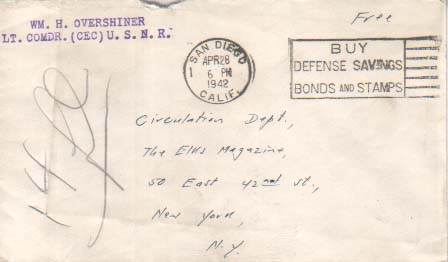 WM. H. OVERSHINER
LT. COMDR. (CEC) U. S. N. R.
Free
SAN DIEGO
APR 28
1 6 PM
1942
CALIF.
BUY
DEFENSE SAVINGS
BONDS AND STAMPS
Circulation Dept.,
The Elks Magazine,
50 East 42nd St.,
New York,
N.Y.